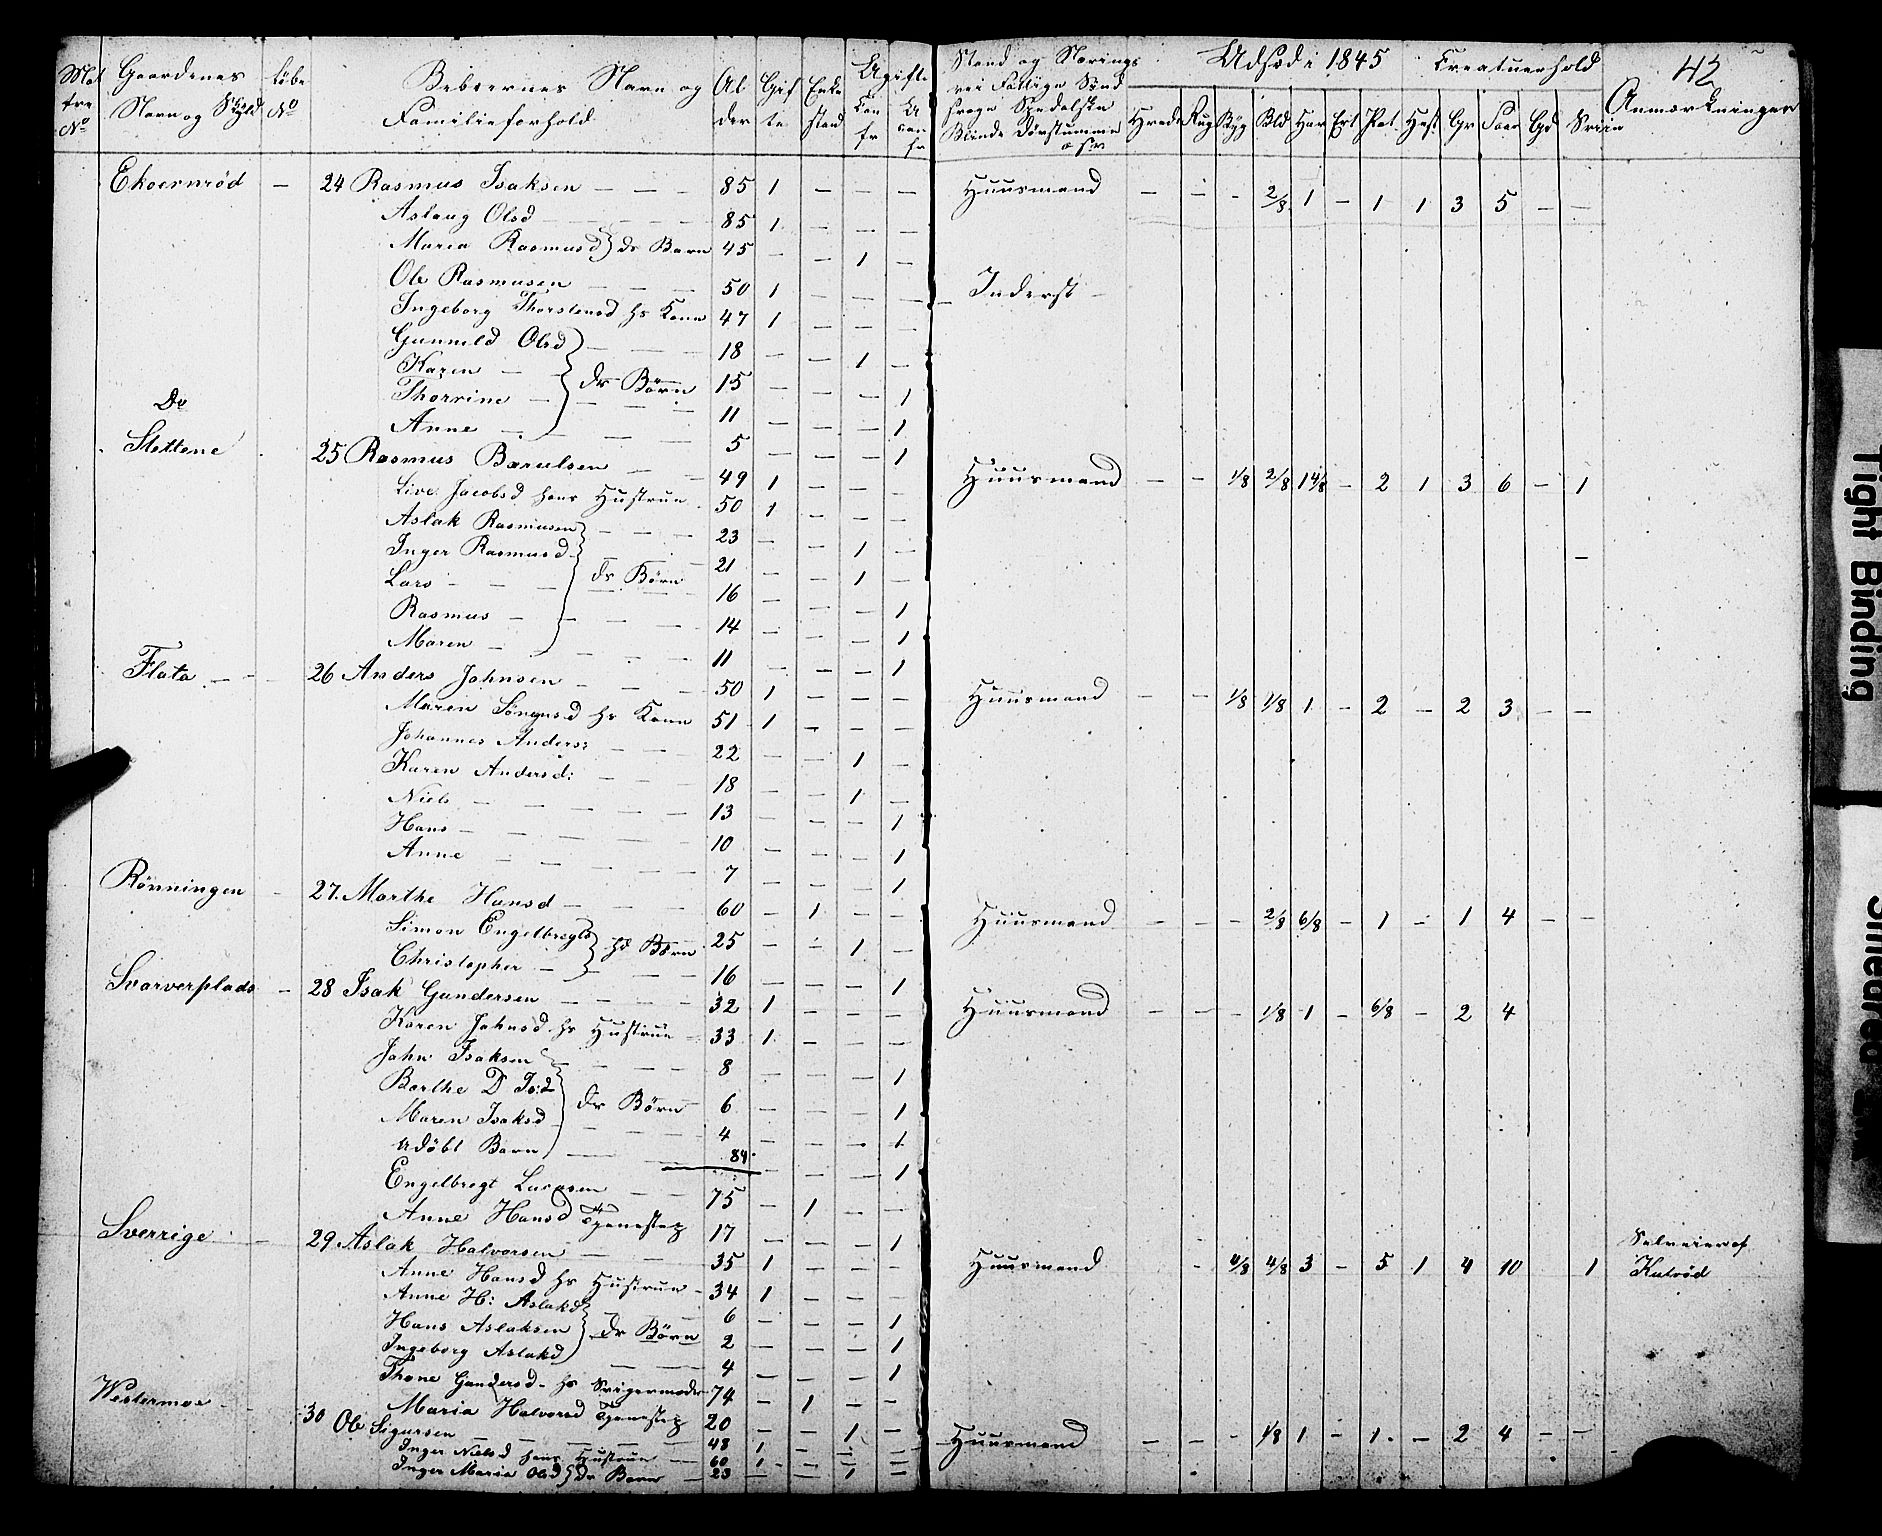 Mat Gaardenes Löbe Beboernes Navn og Al Gif Enke Ugifte Stand og Nærings Udsæd i 1845 Creaturhold 42
tre Navn og Skyld No Familieforhold der te stand Con U vei Fattige Sind Hvede Rug Byg Bld Hav Ert Pot Hest Gr Faar Gd Sviin Anmærkninger
No fr con svage Spedalske
fr Blinde Døvstumme
o s v
Ekoernröd — 24 Rasmus Isaksen — — — 85 1 — — — Huusmand — — - 2/8 1 — 1 1 3 5 — —
Aslaug Olsd — — — — 85 1 — — —
Maria Rasmusd } ds Barn 45 — — 1 —
Ole Rasmusen — — — 50 1 — — — Inderst —
Ingeborg Thorstensd hs Kone 47 1 — — —
Gunneld Olsd — — — 18 — — 1 —
Karen — — } ds Börn 15 — — — 1
Thorvine — — — — 11 — — — 1
Anne — — — — 5 — — — 1
Do
Slettene 25 Rasmus Barulsen — — 49 1 — — — Huusmand — — 1/8 2/8 1 4/8 — 2 1 3 6 — 1
Live Jacobsd hans Hustrue 50 1 — — —
Aslak Rasmusen — — — 23 — — 1 —
Inger Rasmusd — — — 21 — — 1 —
Lars — — — } ds Börn 16 — — — 1
Rasmus — — — — 14 — — — 1
Maren — — — — 11 — — — 1
Flata — — 26 Anders Johnsen — — — 50 1 — — — Huusmand — — 1/8 1/8 1 — 2 — 2 3 — —
Maren Sörensd hs Kone 51 1 — — —
Johannes Anders: — — — 22 — — 1 —
Karen Andersd: — — — 18 — — 1 —
Niels — — — — 13 — — — 1
Hans — — — — 10 — — — 1
Anne — — — — 7 — — — 1
Rönningen — 27. Marthe Hansd — — — 60 — 1 — — Huusmand — — - 2/8 6/8 — 1 — 1 4 — —
Simon Engelbregts } hs Börn 25 — — 1 —
Christopher — — — 16 — — — 1
Svarverplads — 28 Isak Gundersen — — — 32 1 — — — Huusmand — — — 1/8 1 — 6/8 — 2 4
Karen Johnsd hs Hustrue — 33 1 — — —
John Isaksen — — — — 8 — — — 1
Barthe D Is:d } ds Börn — 6 — — — 1
Maren Isaksd — — — — 4 — — — 1
Udöbt Barn — — — 84 — — — 1
Engelbregt Larsen — — 75 — 1 — —
Anne Hansd Tjenestep 17 — — — 1
Sverrige — 29 Aslak Halvorsen — — 35 1 — — — Huusmand — 4/8 4/8 3 — 5 1 4 10 1 Selveier af
Anne Hansd hs Hustrue — 34 1 — — — Kulröd
Anne H: Aslakd — — 6 — — — 1
Hans Aslaksen } ds Börn 2 — — — 1
Ingeborg Aslakd — — — 4 — — — 1
Thone Gundersd — hs Svigermoder 74 — 1 — —
Maria Halvorsd Tjenestep 20 — — 1 —
Westermoe — 30 Ole Sigursen — — — — 48 1 — — — Huusmand — — - 1/8 1 — 1 — 2 4 — —
Inger Nielsd hans Hustrue — 60 1 — — —
Inger Maria Olsd } ds Barn — 23 — — 1 —
Tight Binding
Smeared